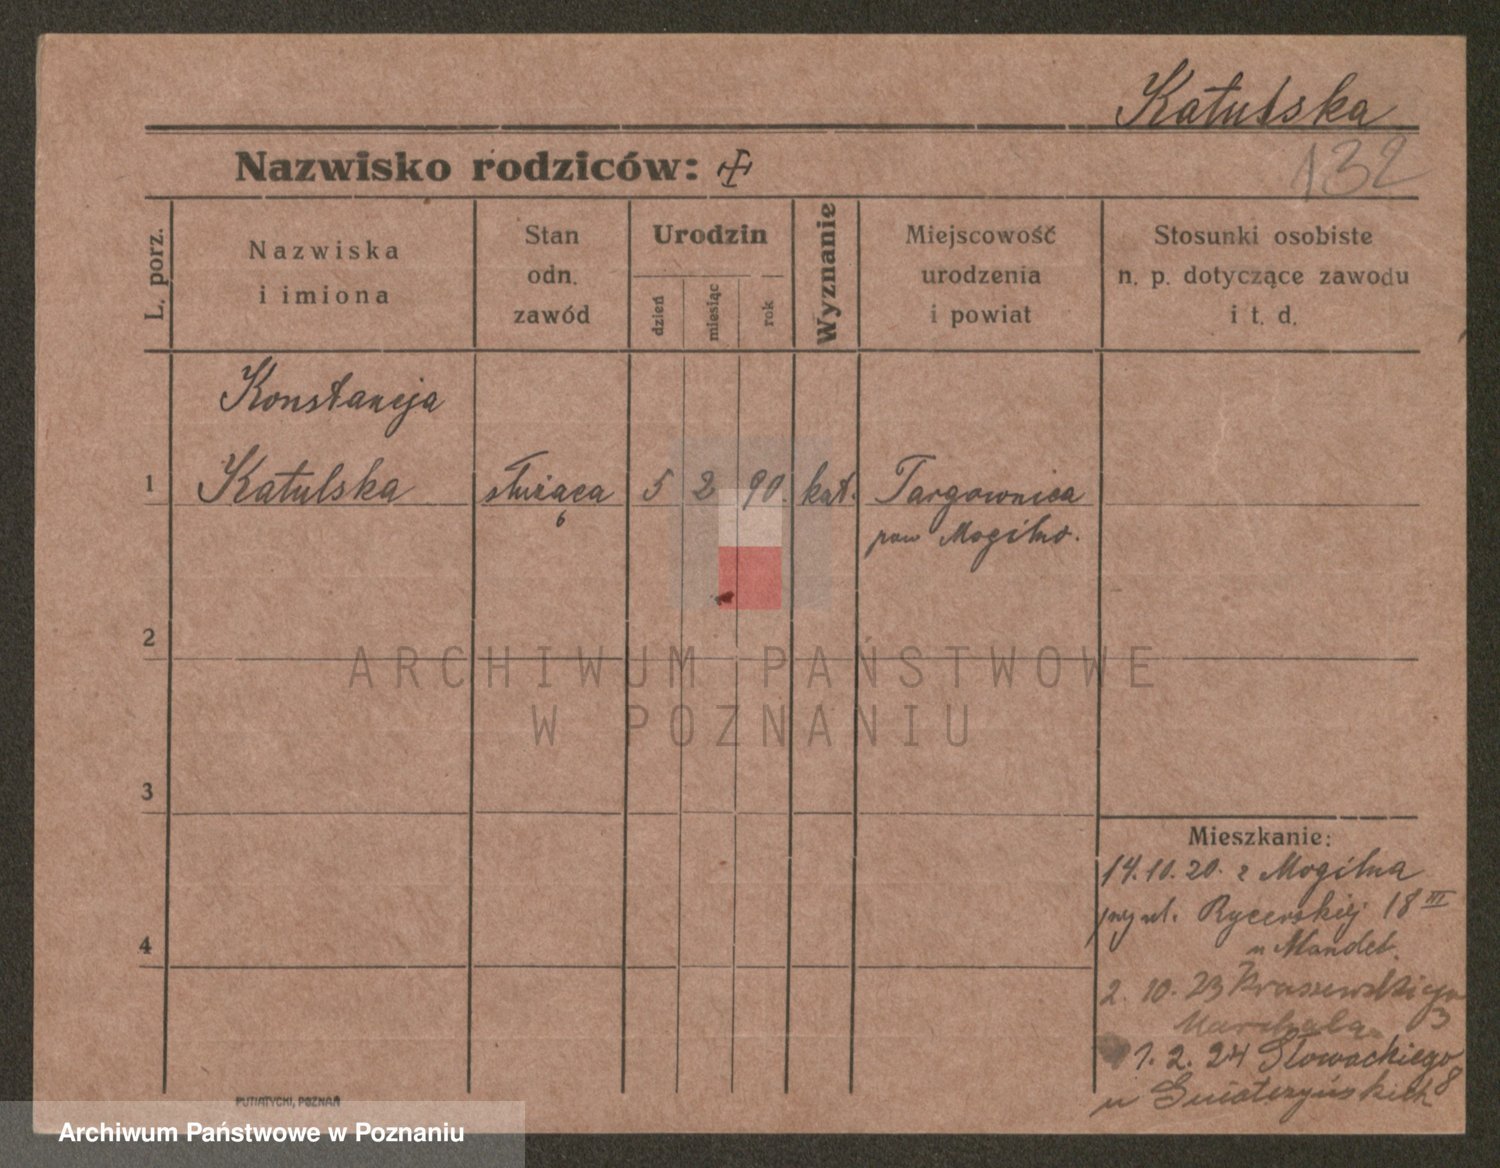 Katulska
132
Nazwisko rodziców:
L. porz.
Nazwiska
i imiona
Stan
odn.
zawód
Urodzin
dzień
miesiąc
rok
Wyznanie
Miejscowość
urodzenia
i powiat
Stosunki osobiste
n. p. dotyczące zawodu
i t. d.
Konstancja
1 Katulska służąca 5 2 90. kat. Targownica
6
pow Mogilno.
2
ARCHIWUM PAŃSTWOWE
W POZNANIU
3
Mieszkanie:
14.10.20. z Mogilna
przy ul. Rycerskiej 18 III
4
u Mandel.
2. 10. 23 Kraszewskiego
3
1. 2. 24 Słowackiego
8
u
PUTIATYCKI, POZNAŃ
Archiwum Państwowe w Poznaniu